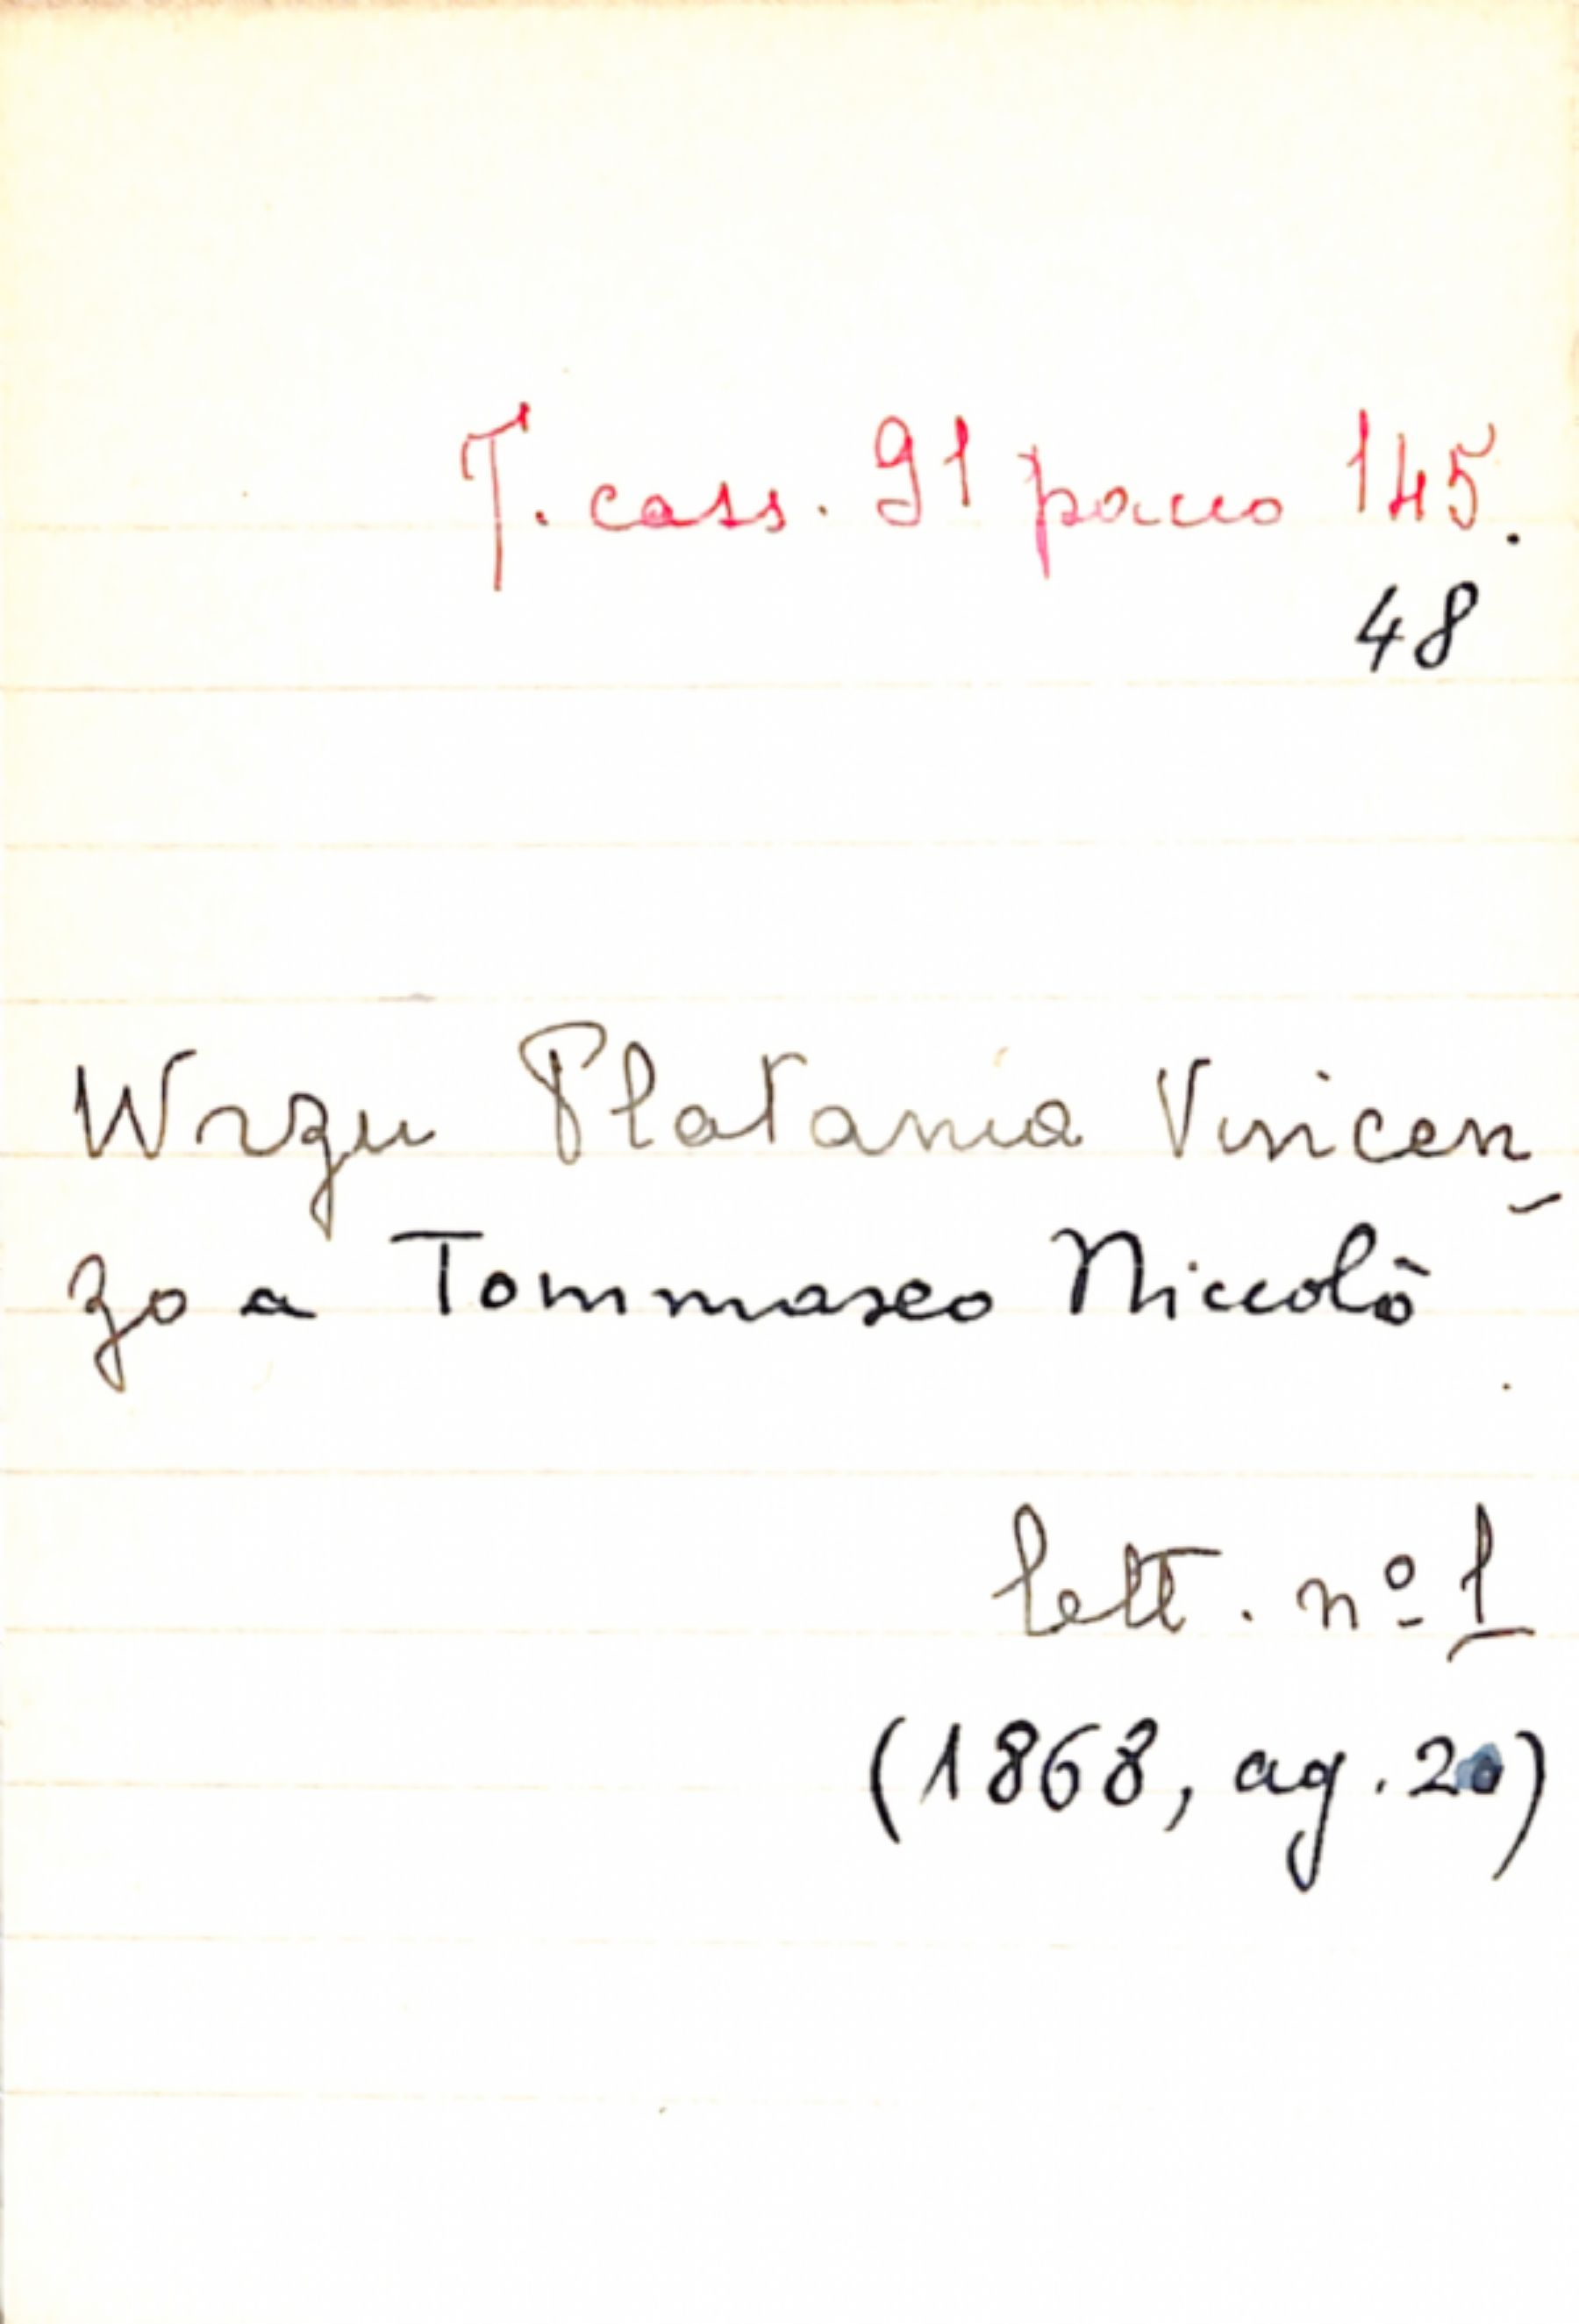 T. cass. 91 pacco 145.
48
Wrzu Platania Vincen-
zo a Tommaseo Niccolò
lett. nº 1
(1868, ag. 20)